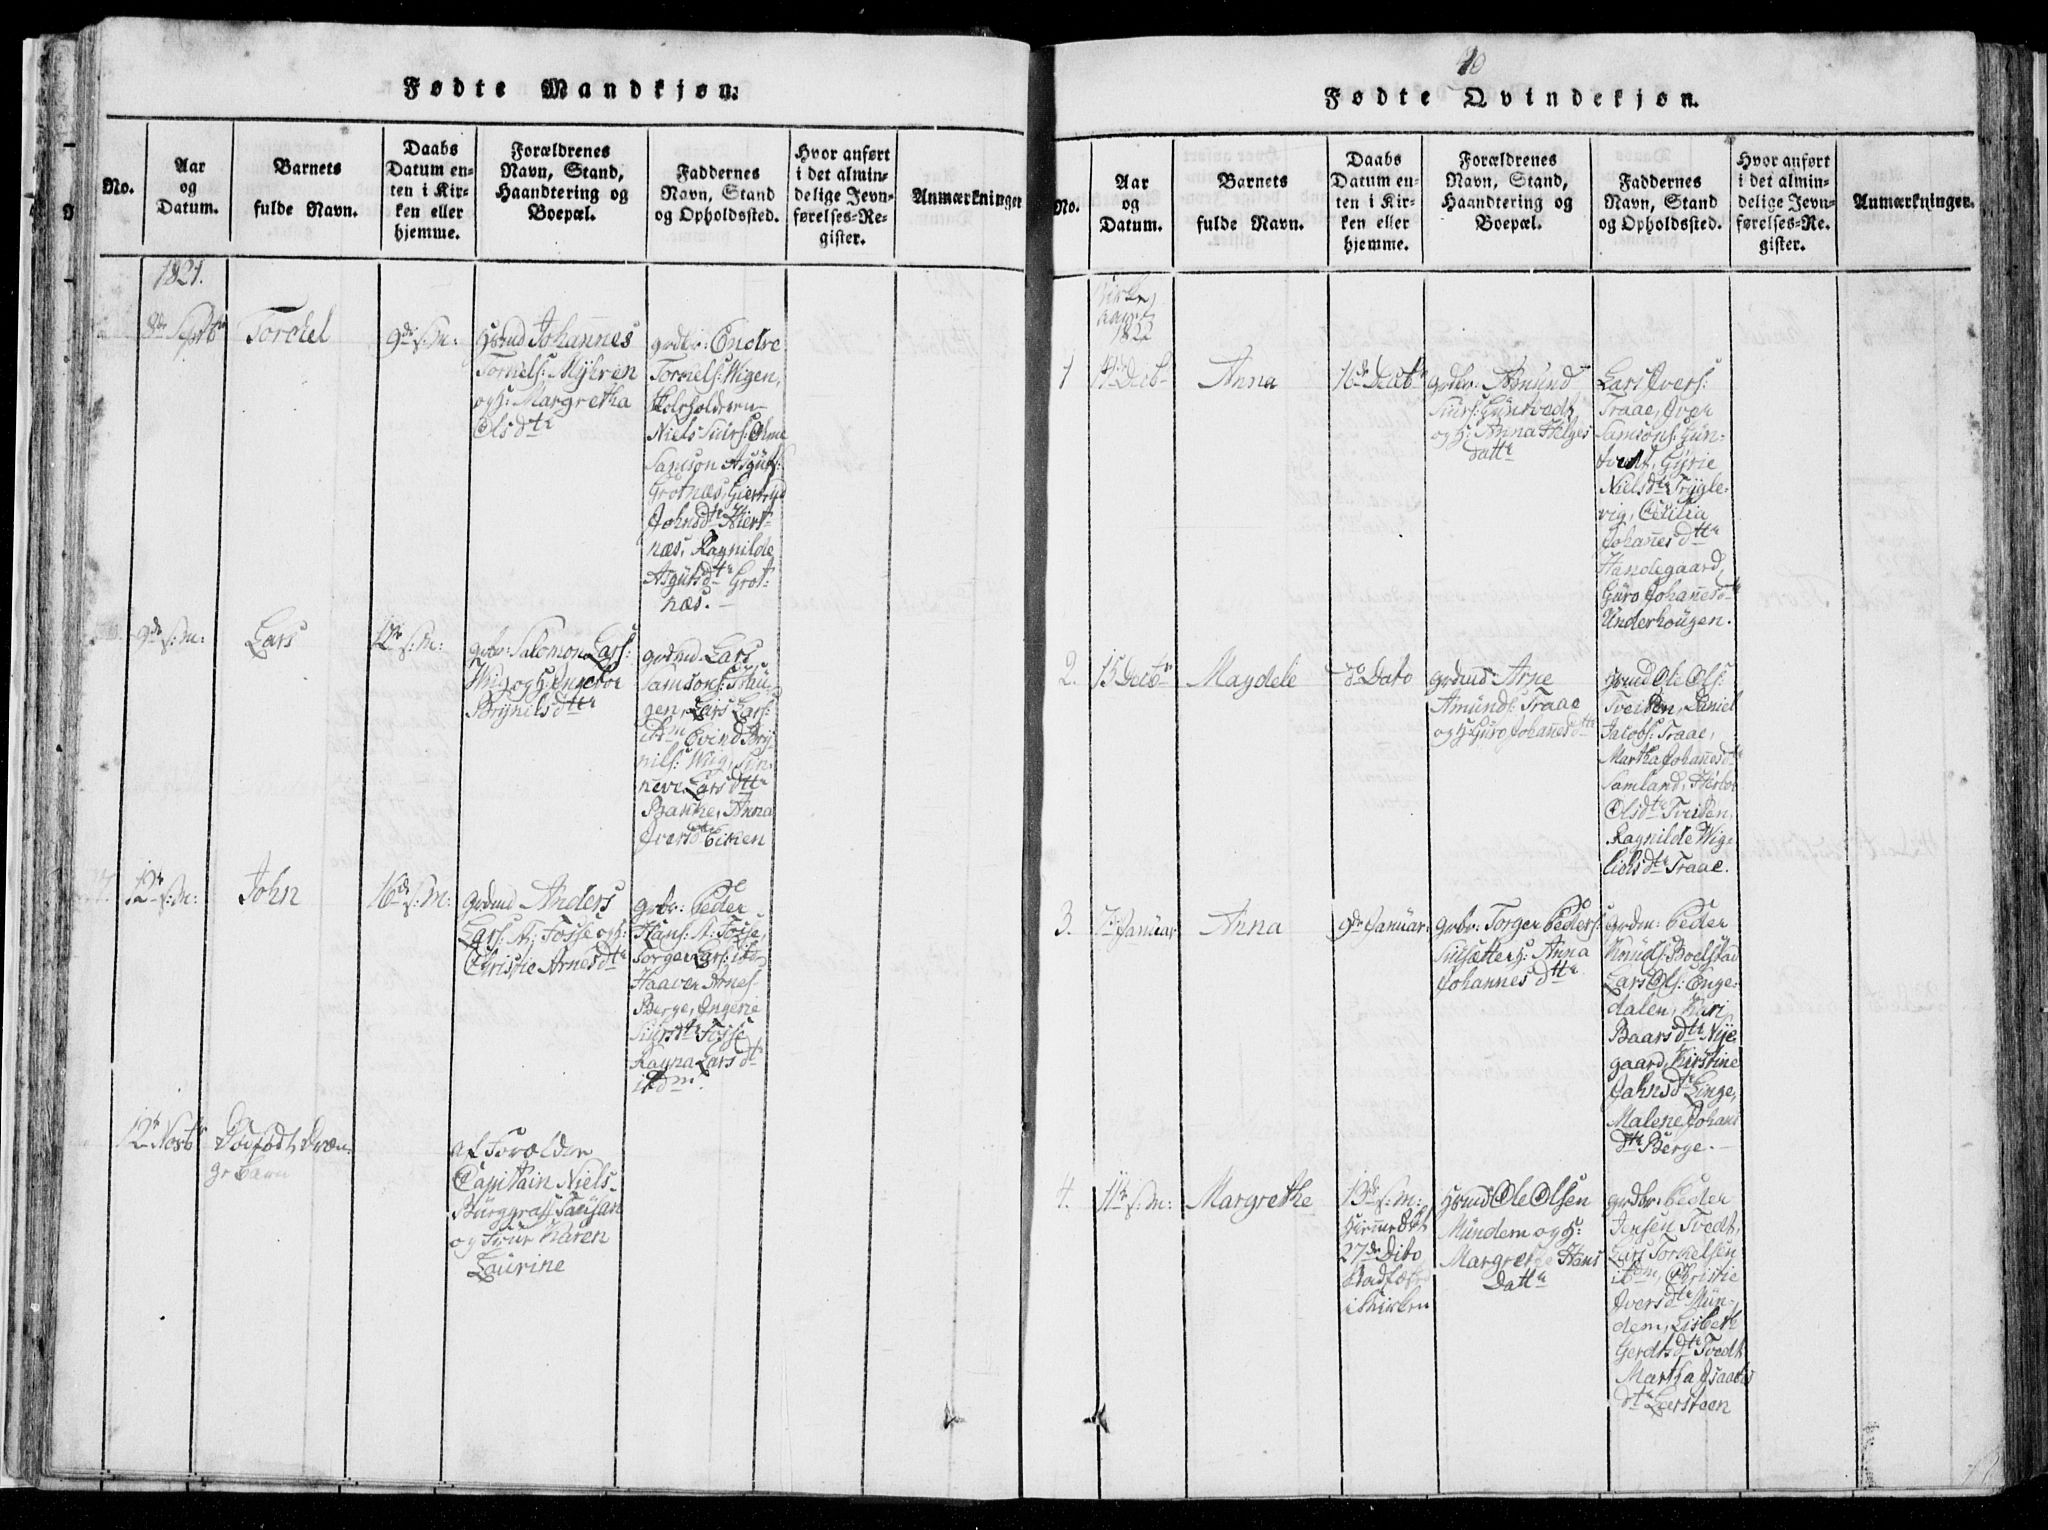 Fødte Mandkjøn.
No.
Aar
og
Datum.
Barnets
fulde Navn.
Daabs
Datum en-
ten i Kir-
ken eller
hjemme.
Forældrenes
Navn, Stand,
Haandtering og
Boepæl.
Faddernes
Navn, Stand
og Opholdssted.
Hvor anført
i det almin-
delige Jevn-
førelses-Re-
gister.
Anmærkninger
1821.
Septbr
Torckel
9de s: m:
Hsmd Johannes
Myhren
og H: Margretha
Olsdtr
grbr: Endre
Wigen,
Niels Siurs:
Samson Asguts:
Grotnæs, Giertrud
Johnsdtr Kiers-
næs, Ragnilde
Asgutsdtr Grot-
næs. –
9de s: m:
Lars
12te s: m:
grbr: Salomon Lars:
Wiig og H: Ingebor
Brynilsdttr
grdmd Lars
Samsons:
gen, Lars Lars:
ibdm Övind Bry-
nils: Wiig, Sün-
neve Larsdttr
Bakke, Anna
Iversd
12te s: m:
John
16de s: m:
grdmd Anders
Lars: N: Fosse og H:
Christie Arnesdtr
grbr: Peder
Hans: N: Fosse,
Torger Lars: ibd
Haaver Arnes-
Berge, Ingerie
Fosse
Ragna Larsdtr
ibdm.
12te Novbr
Dødfødt Dræn-
ge Barn
af Forældre
Capitain Niels
Bürggraff
og Frue Karen
Laurine
40
Fødte Qvindekjøn.
No.
Aar
og
Datum.
Barnets
fulde Navn.
Daabs
Datum en-
ten i Kir-
ken eller
hjemme.
Forældrenes
Navn, Stand,
Haandtering og
Boepæl.
Faddernes
Navn, Stand
og Opholdssted.
Hvor anført
i det almin-
delige Jevn-
førelses-Re-
gister.
Anmærkninger.
Kirke,
Aaret
1822
1
14de Decb
Anna
16de Decbr
grdbr: Asmund
Siurs: Güntvedt
og H: Anna Helges
Dattr
Lars Ivers:
Traae, Iver
Samsons: Gün-
tvedt, Gyrie
Nielsdtr Trygle-
vig, Cecilia
Johanesdttr
Handegaard,
Güro Johanesdtr
Ünderhougen.
2.
15 Decbr
Magdele
do Dato
grdmd: Arne
Amünds: Traae
og H: Güro Johanesdttr
Hsmd Ole Ols:
Tveiten, Daniel
Jacobs: Traae,
Martha Johanesdtr
Samland, Herbor
Olsdtr Tveiten,
Ragnilde Wig-
leiksdtr Traae.
3.
7de Januar
Anna
9de Januar:
grbr: Torger Peders:
H: Anna
Johannesdttr
grdm: Peder
Knüds: Boelstad
Lars Ols: Enge-
dalen, Kari
Baarsdtr Nye
gaard, Kirstine
Johnsdtr Linge,
Malene Johans
dtr Berge. –
4.
11te s: m:
Margrethe
13de s: m:
Hiemedøbt
27de Dito
Stadfæst
i Kirken
Hsmd Ole Olsen
Mündem og H:
Margrethe Hans
Dattr
grdbr: Peder
Jensen Tvedt,
Lars Torkelsen
ibdm, Christie
Iversdtr Mün-
dem, Lisbeth
Gerdtsdtr Tvedt
Martha Isaachs
dtr Leersteen